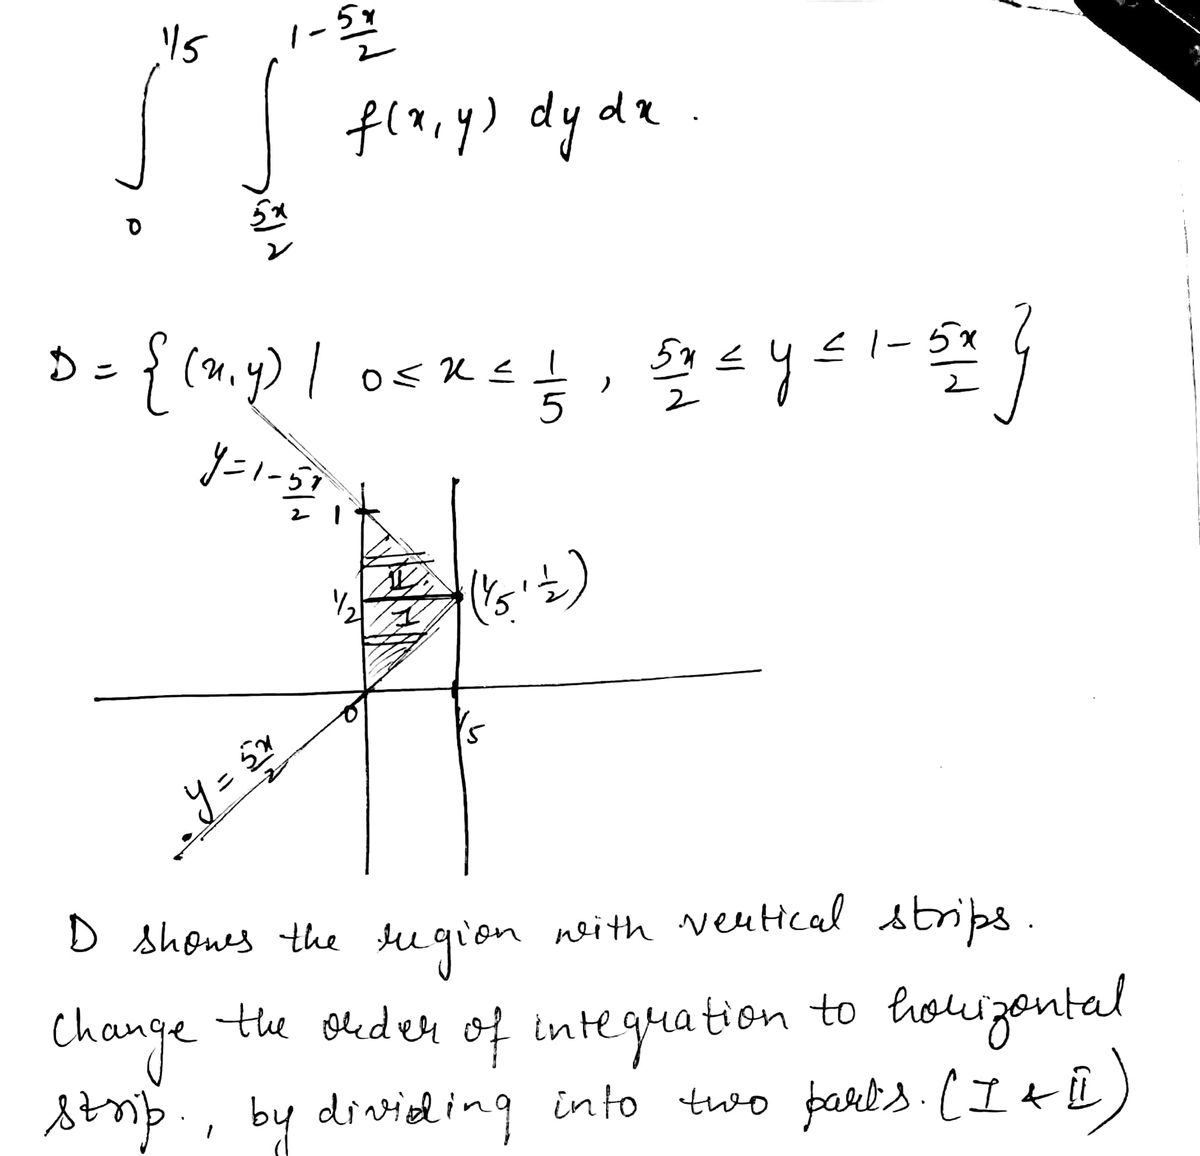 ∫₀^{1/5} ∫_{5x/2}^{1-5x/2} f(x,y) dy dx .
D = { (x,y) | 0 ≤ x ≤ 1/5 , 5x/2 ≤ y ≤ 1-5x/2 }
y=1-5x/2
1
II
1/2
(1/5, 1/2)
I
0
1/5
y = 5x/2
D shows the region with vertical strips.
Change the order of integration to horizontal
strip., by dividing into two parts. (I & II)